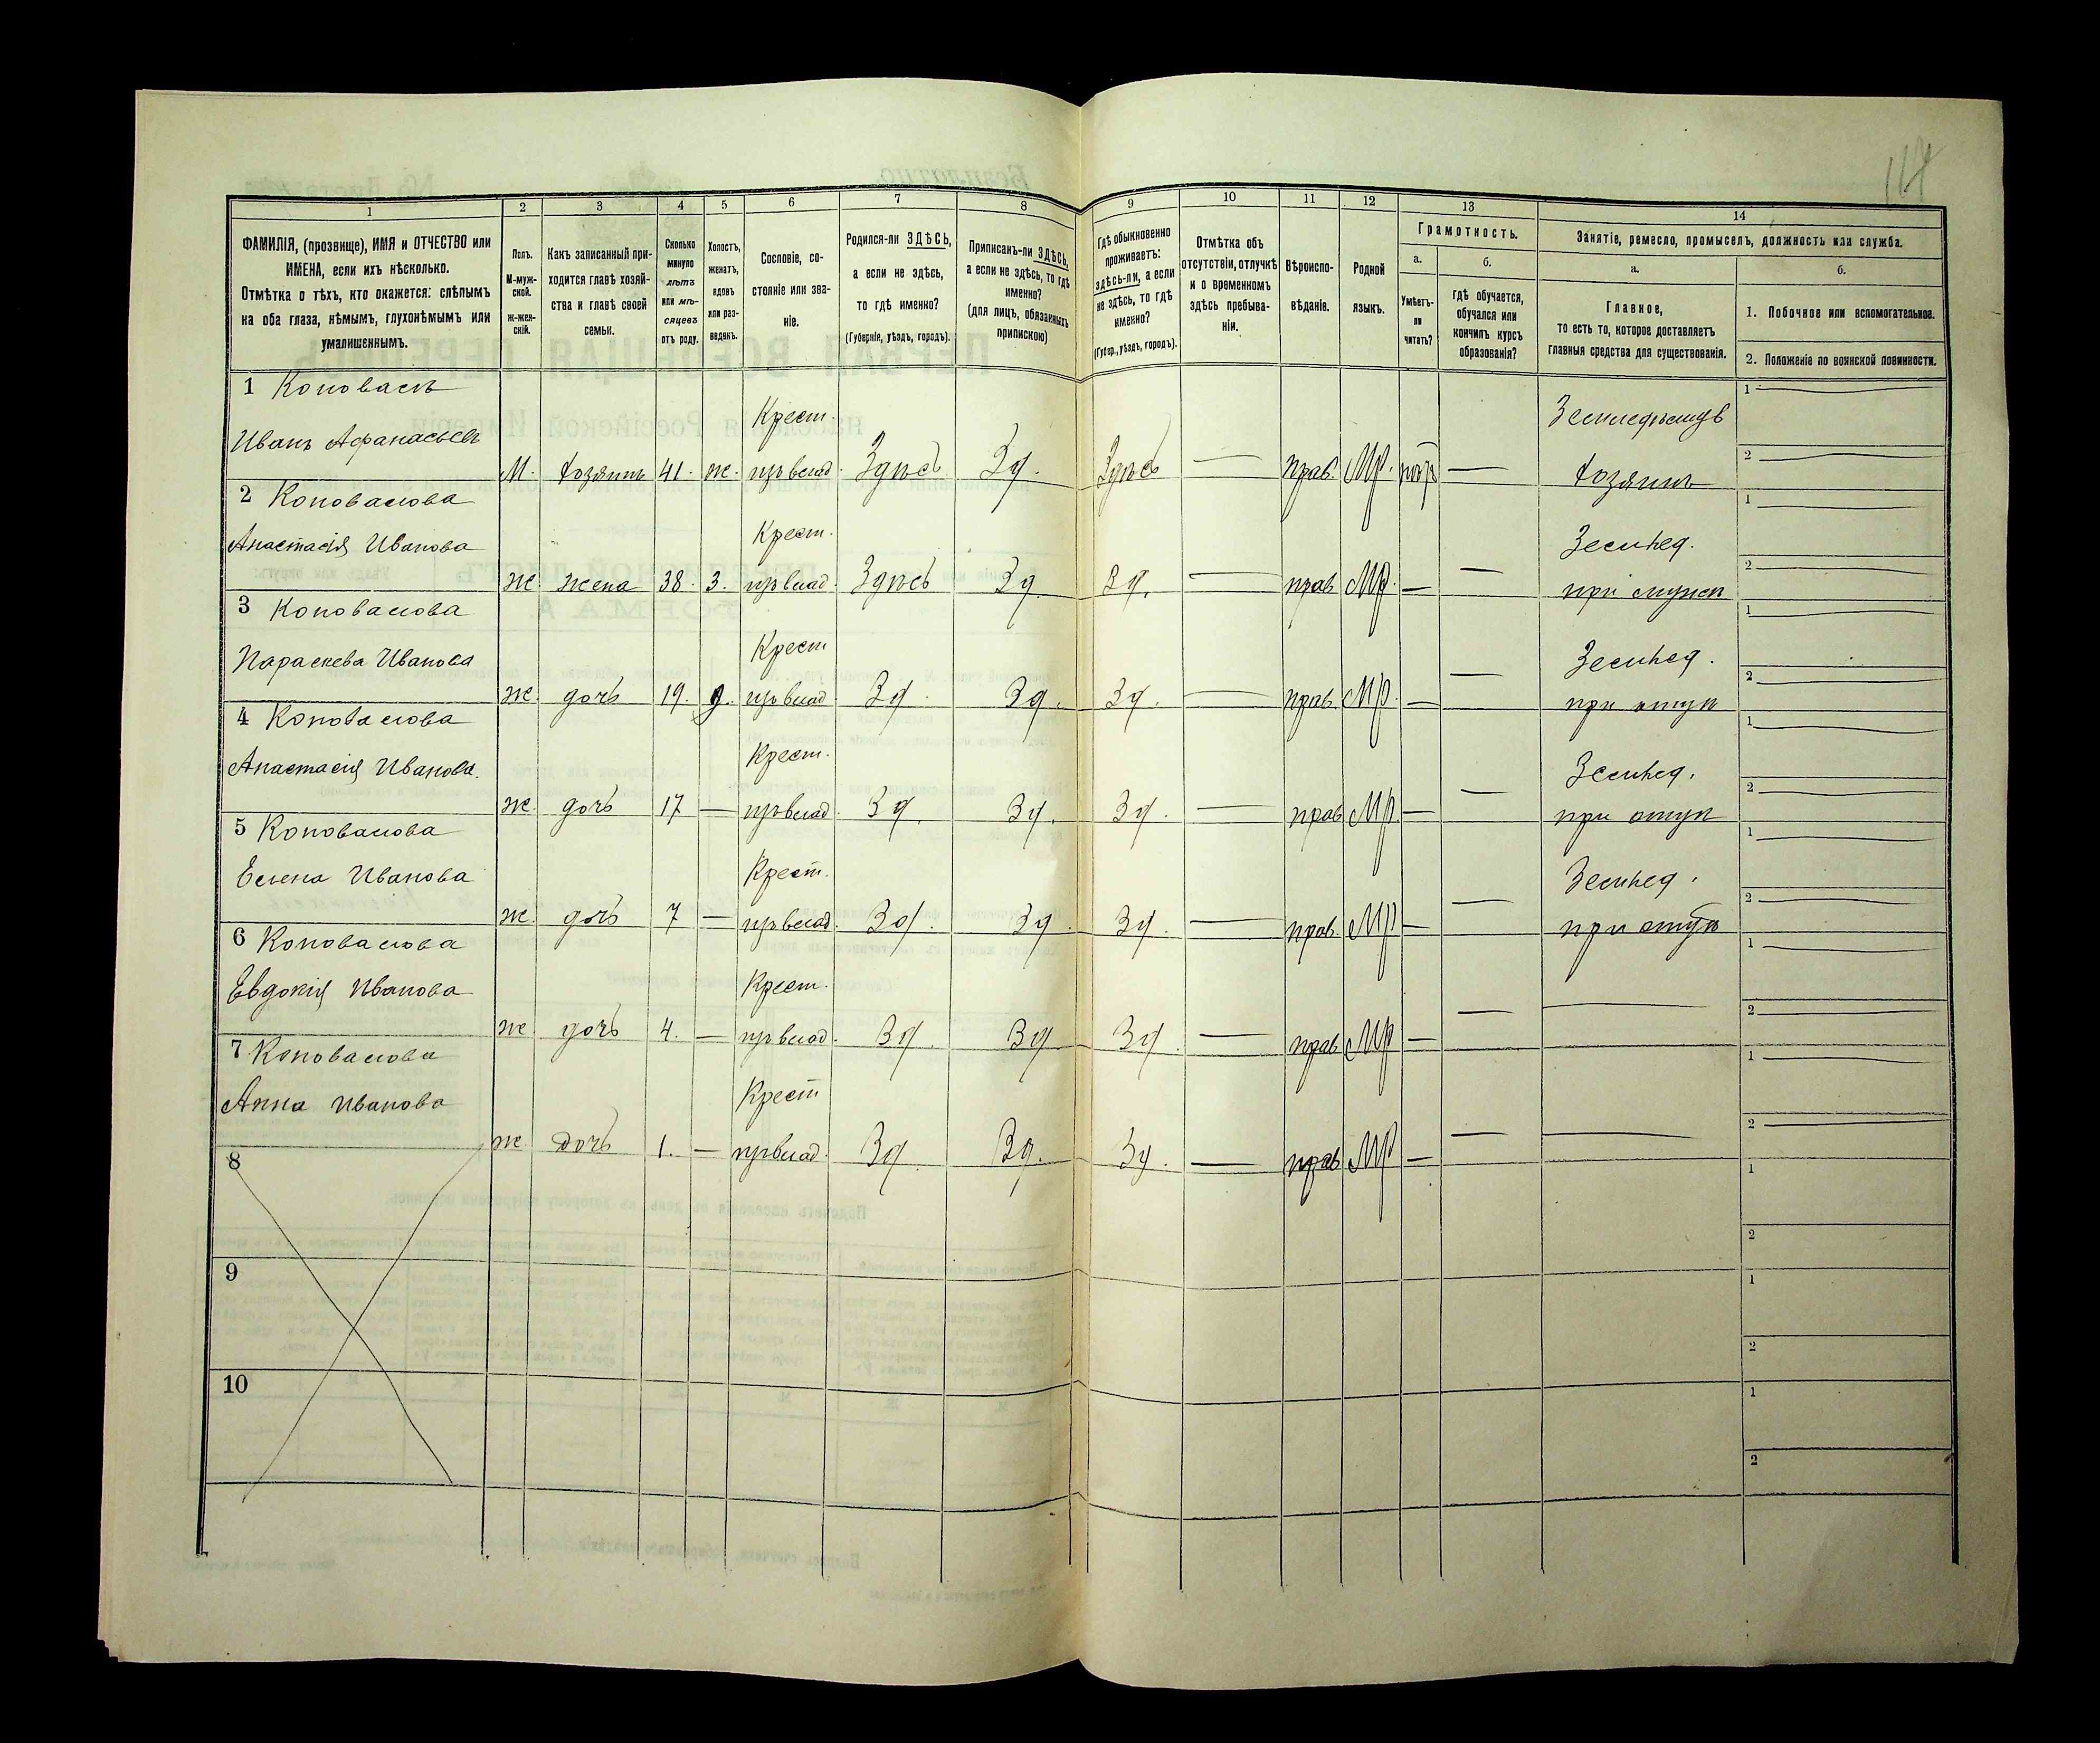 117
1 2 3 4 5 6 7 8 9 10 11 12 13 14
ФАМИЛІЯ, (прозвище), ИМЯ и ОТЧЕСТВО или
ИМЕНА, если ихъ нѣсколько.
Отмѣтка о тѣхъ, кто окажется: слѣпымъ
на оба глаза, нѣмымъ, глухонѣмымъ или
умалишеннымъ.
Полъ.
М-муж-
ской.
Ж-жен-
скій.
Какъ записанный при-
ходится главѣ хозяй-
ства и главѣ своей
семьи.
Сколько
минуло
лѣтъ
или мѣ-
сяцевъ
отъ роду.
Холостъ,
женатъ,
вдовъ
или раз-
веденъ.
Сословіе, со-
стояніе или зва-
ніе.
Родился-ли ЗДѢСЬ,
а если не здѣсь,
то гдѣ именно?
(Губернія, уѣздъ, городъ).
Приписанъ-ли ЗДѢСЬ,
а если не здѣсь, то гдѣ
именно?
(для лицъ, обязанныхъ
припискою)
Гдѣ обыкновенно
проживаетъ:
здѣсь-ли, а если
не здѣсь, то гдѣ
именно?
(Губер., уѣздъ, городъ).
Отмѣтка объ
отсутствіи, отлучкѣ
и о временномъ
здѣсь пребыва-
ніи.
Вѣроиспо-
вѣданіе.
Родной
языкъ.
Грамотность.
а.
Умѣетъ-
ли
читать?
б.
гдѣ обучается,
обучался или
кончилъ курсъ
образованія?
Занятіе, ремесло, промыселъ, должность или служба.
а.
Главное,
то есть то, которое доставляетъ
главныя средства для существованія.
б.
1. Побочное или вспомогательное.
2. Положеніе по воинской повинности.
1 Коновалъ
Крест. Земледѣлецъ 1
Иванъ Афанасьевъ
М. хозяинъ 41. ж. пр влад. Здѣсь Зд. Здѣсь прав. Мр. хозяинъ 2
2 Коновалова
Крест. Землед. 1
Анастасія Иванова
ж жена 38. З. пр влад. Здѣсь Зд. Зд. прав Мр. при мужѣ 2
3 Коновалова
Крест Землед. 1
Параскева Иванова
ж. дочь 19. д. пр влад. Зд. Зд. Зд. прав. Мр. при отцѣ 2
4 Коновалова
Крест. Землед. 1
Анастасія Иванова.
ж. дочь 17 пр влад. Зд. Зд. Зд. прав Мр. при отцѣ 2
5 Коновалова
Крест. Землед. 1
Елена Иванова
ж. дочь 7 пр влад. Зд. Зд. Зд. прав. Мр при отцѣ 2
6 Коновалова
Крест. 1
Евдокія Иванова
ж. дочь 4. пр влад. Зд. Зд Зд. прав Мр 2
7 Коновалова
Крест 1
Анна Иванова
ж. дочь 1. пр влад. Зд. Зд. Зд. прав Мр 2
8 1
2
9 1
2
10 1
2